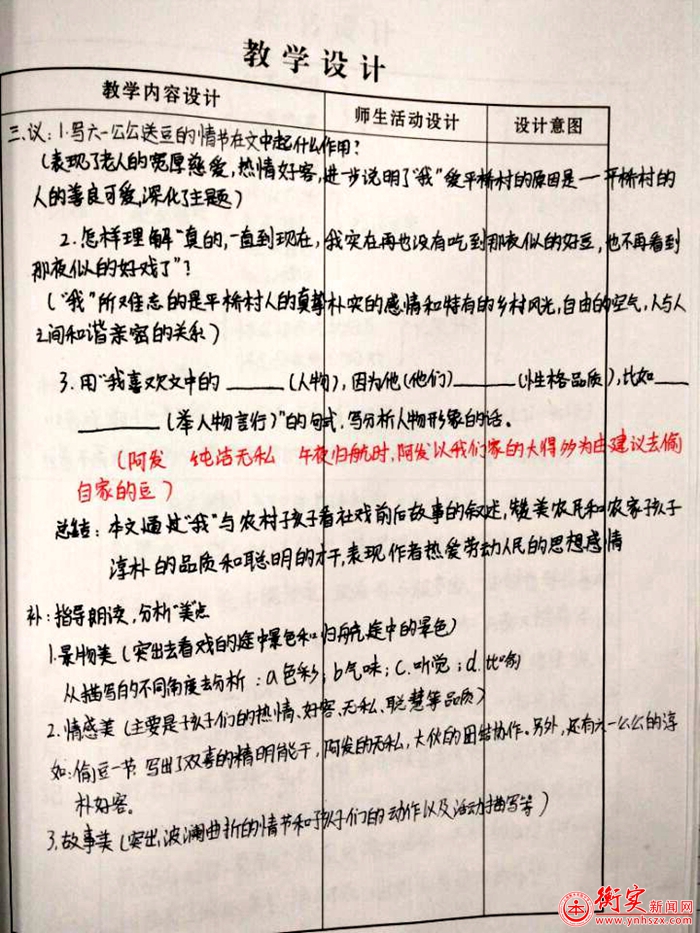 教学设计
教学内容设计 师生活动设计 设计意图
三、议：1.写六一公公送豆的情节在文中起什么作用？
（表现了老人的宽厚慈爱，热情好客，进一步说明了“我”爱平桥村的原因是一平桥村的
人的善良可爱，深化了主题）
2.怎样理解“真的，一直到现在，我实在再也没有吃到那夜似的好豆，也不再看到
那夜似的好戏了”？
（“我”所难忘的是平桥村人的真挚朴实的感情和特有的乡村风光，自由的空气，人与人
之间和谐亲密的关系）
3.用“我喜欢文中的______（人物），因为他（他们）______（性格品质），比如___
________（举人物言行）”的句式，写分析人物形象的话。
（阿发 纯洁无私 午夜归航时，阿发以我们家的大得多为由建议去偷
自家的豆）
总结：本文通过“我”与农村孩子看社戏前后故事的叙述，赞美农民和农家孩子
淳朴的品质和聪明的才干，表现作者热爱劳动人民的思想感情
补：指导朗读，分析“美”点
1.景物美（突出去看戏的途中景色和归航途中的景色）
从描写的不同角度去分析：a色彩；b气味；c.听觉；d.比喻
2.情感美（主要是孩子们的热情、好客、无私、聪慧等品质）
如：偷豆一节 写出了双喜的精明能干，阿发的无私，大伙的团结协作。另外，还有六一公公的淳
朴好客。
3.故事美（突出波澜曲折的情节和孩子们的动作以及活动描写等）
衡实新闻网
www.ynhszx.com